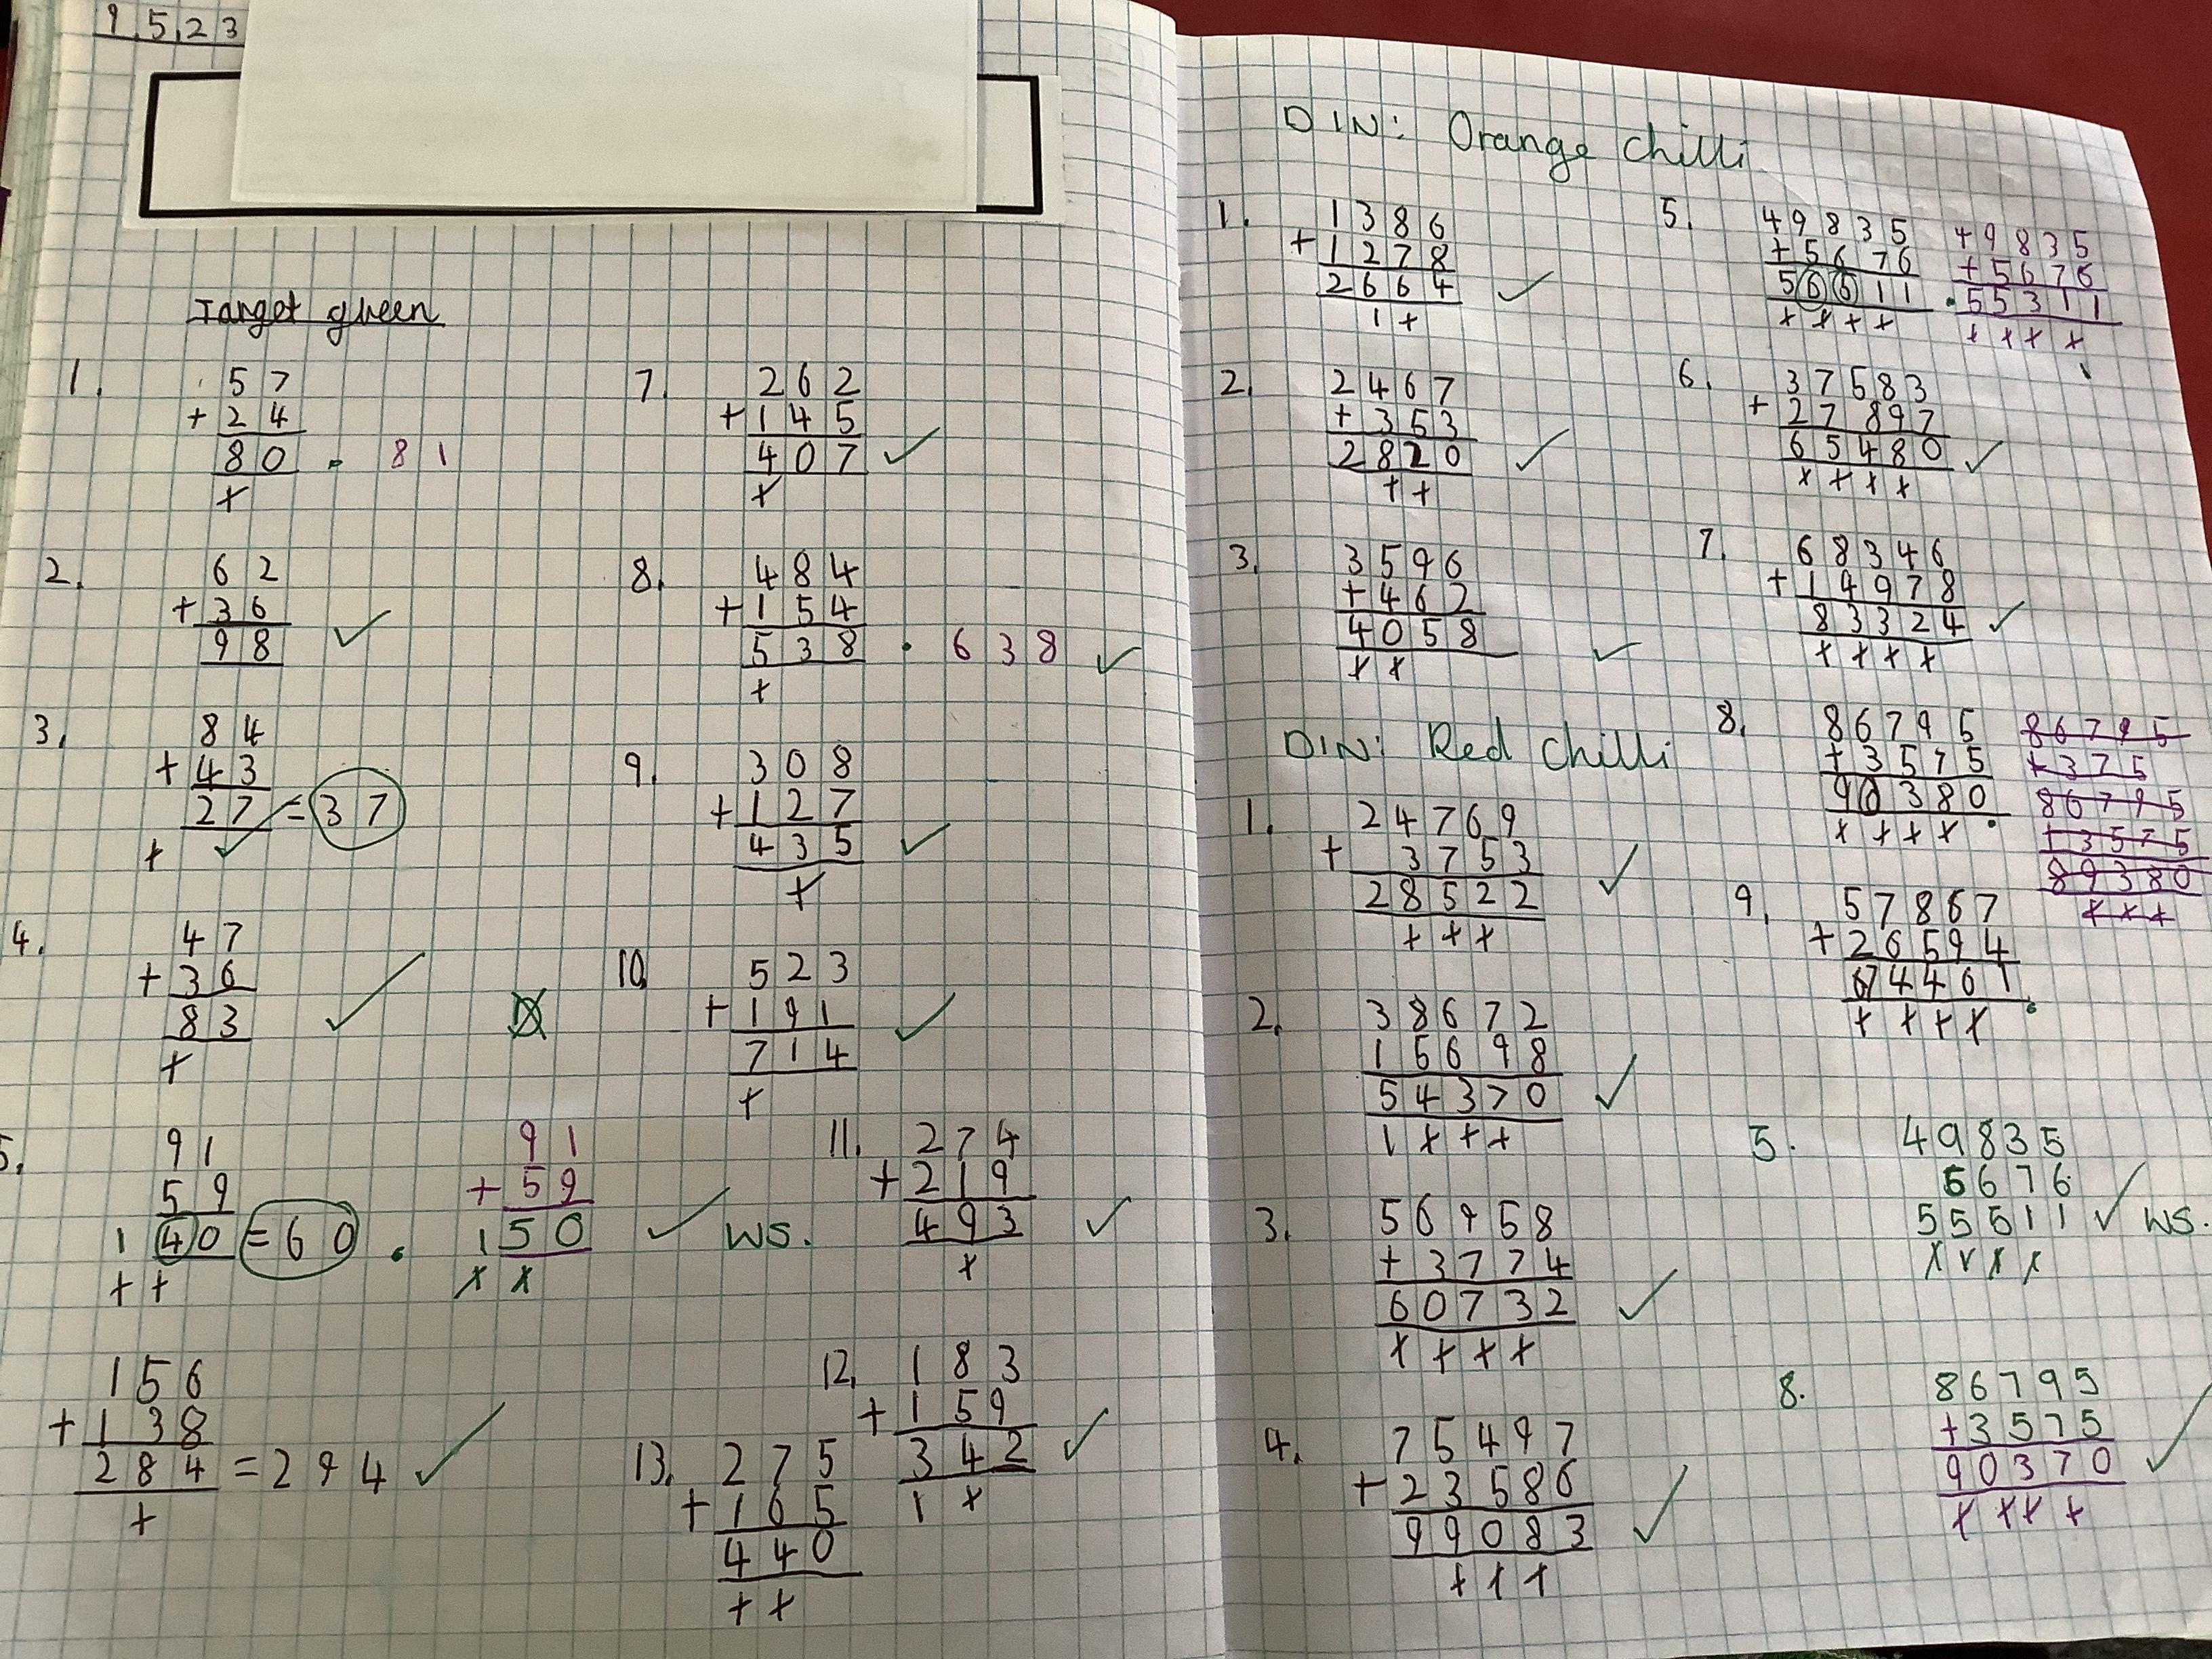 9.5.23
Target green
1.
57
+24
80 . 81
+
2.
62
+36
98 ✓
3.
84
+43
27 = 37
+ ✓
4.
47
+36
83 ✓
+
5.
91
59
140 = 60 .
++
91
+59
150 ✓ WS.
156
+138
284 = 294 ✓
+
7.
262
+145
407 ✓
+
8.
484
+154
538 . 638 ✓
+
9.
308
+127
435 ✓
+
10.
523
+191
714 ✓
+
11.
274
+219
493 ✓
+
12.
183
+159
342 ✓
1+
13.
275
+165
440
++
DIN: Orange Chilli
1.
1386
+1278
2664 ✓
1+
2.
2467
+353
2820 ✓
++
3.
3596
+462
4058 ✓
++
DIN: Red Chilli
1.
24769
+ 3753
28522 ✓
+++
2.
38672
15698
54370 ✓
1+++
3.
56958
+3774
60732 ✓
++++
4.
75497
+23586
99083 ✓
+++
5.
49835
+5676
56611
++++
49835
+5676
.55311
++++
6.
37583
+27897
65480 ✓
++++
7.
68346
+14978
83324 ✓
++++
8.
86795
+3575
90380 .
++++
86795
+375
86795
+3575
89380
+++
9.
57867
+26594
74461 .
++++
5.
49835
5676
55511 ✓ WS.
8.
86795
+3575
90370 ✓
++++